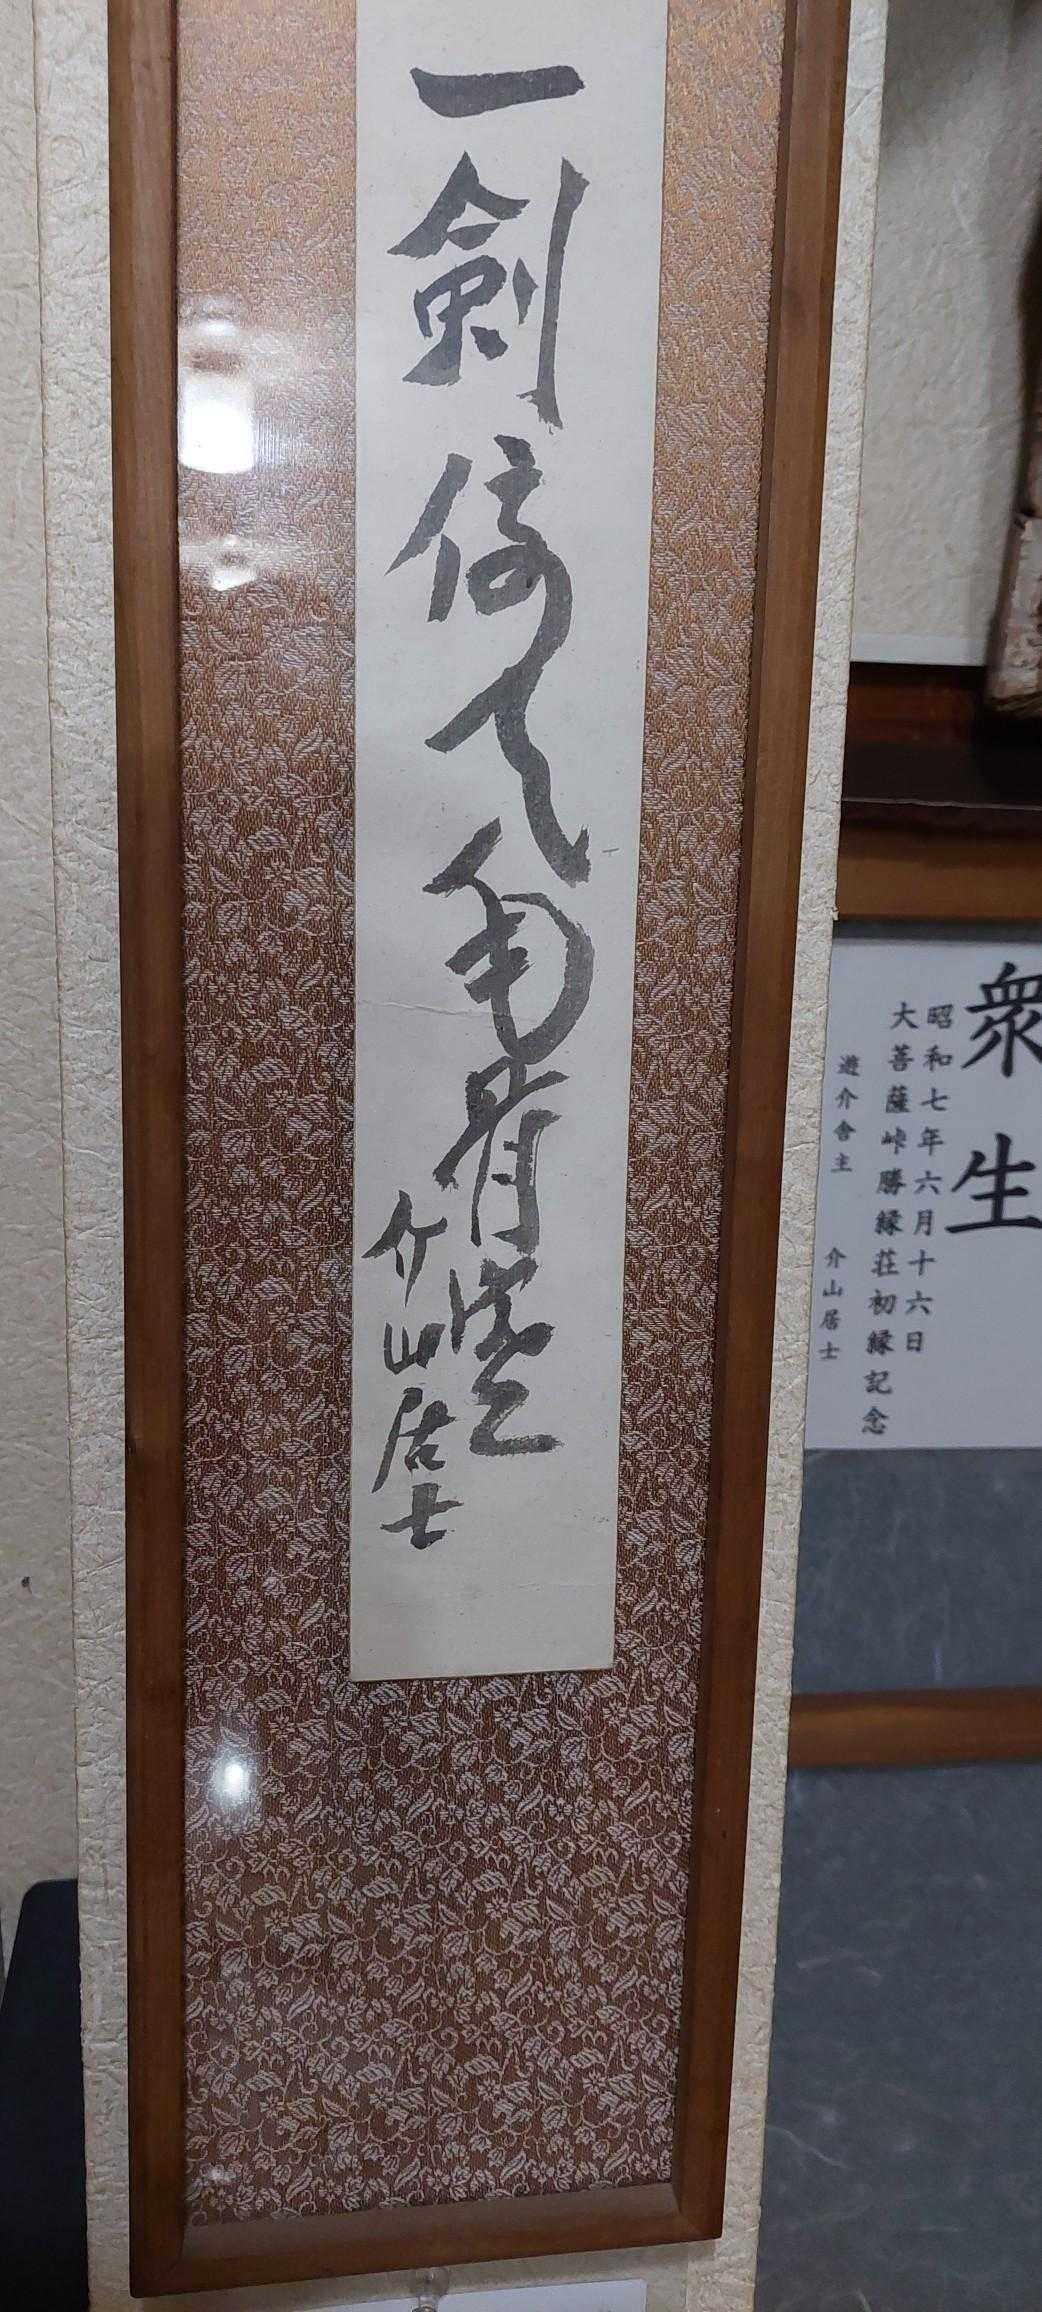 衆生
昭和七年六月十六日
大菩薩峠勝縁荘初縁記念
遊介舎主 介山居士
一剣倚天
介山居士